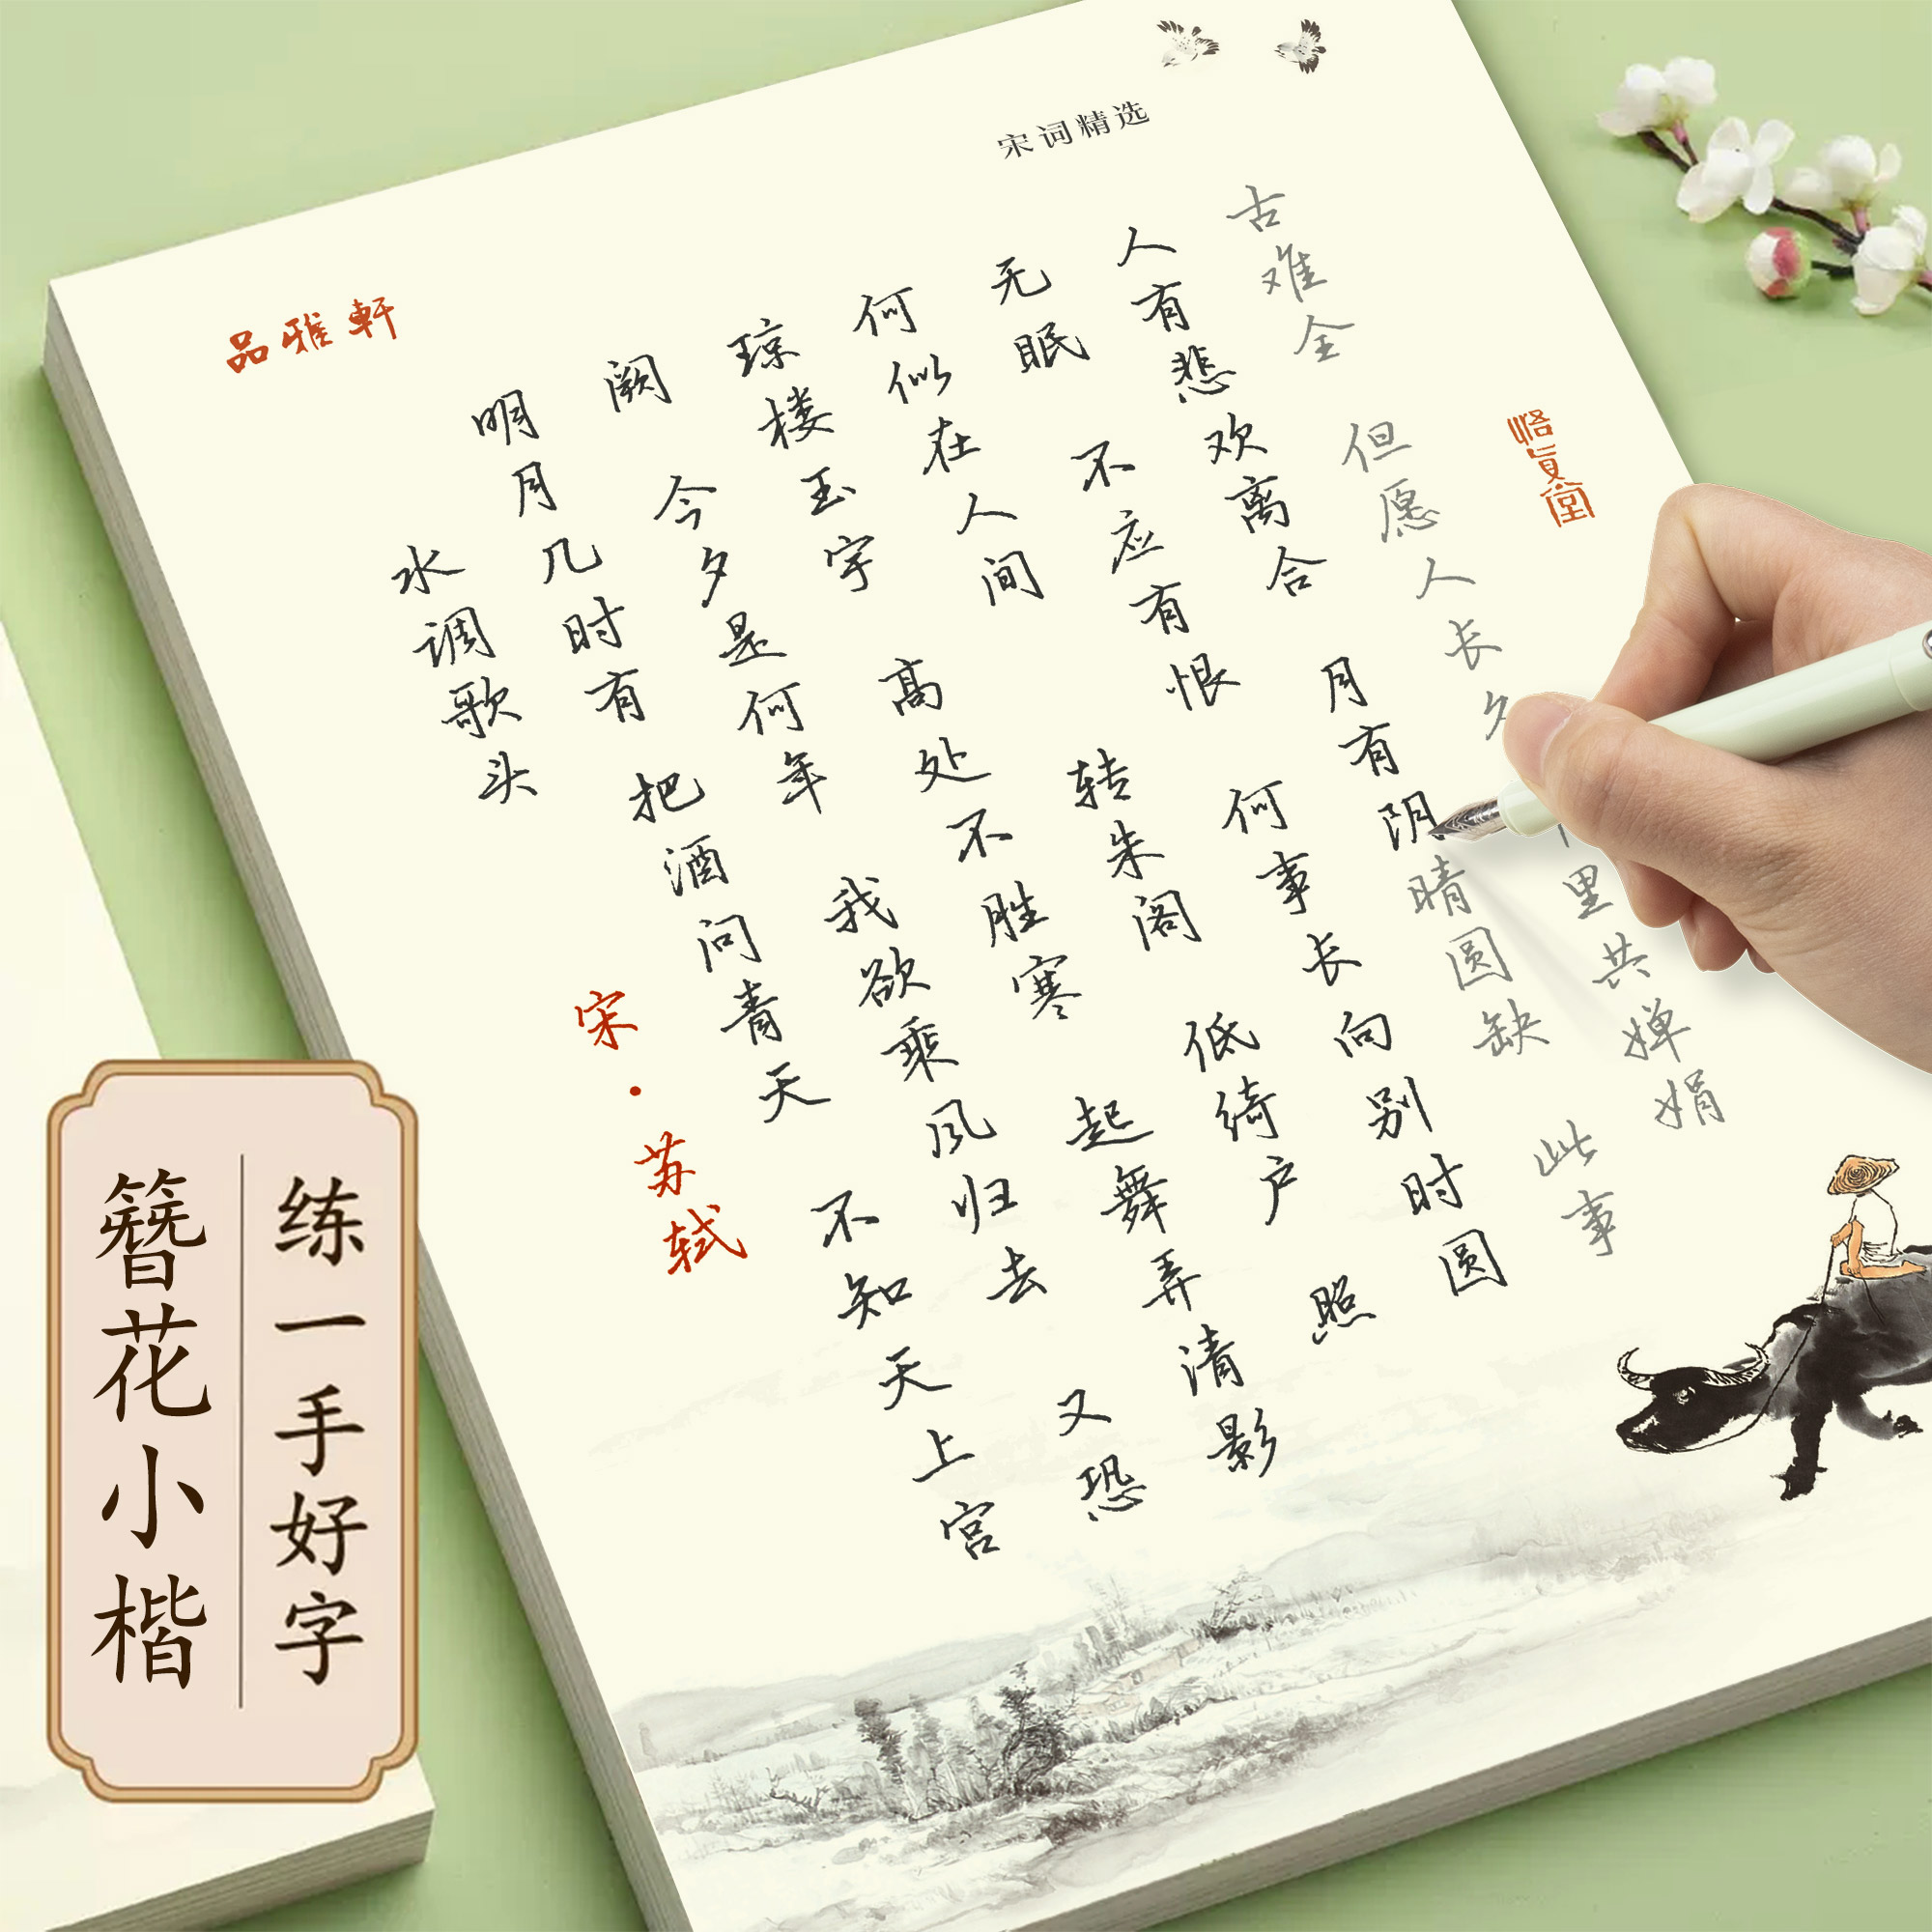 宋词精选
品雅軒
水调歌头 宋·苏轼
明月几时有 把酒问青天 不知天上宫
阙 今夕是何年 我欲乘风归去 又恐
琼楼玉宇 高处不胜寒 起舞弄清影
何似在人间 转朱阁 低绮户 照
无眠 不应有恨 何事长向别时圆
人有悲欢离合 月有阴晴圆缺 此事
古难全 但愿人长 里共婵娟
练一手好字
簪花小楷